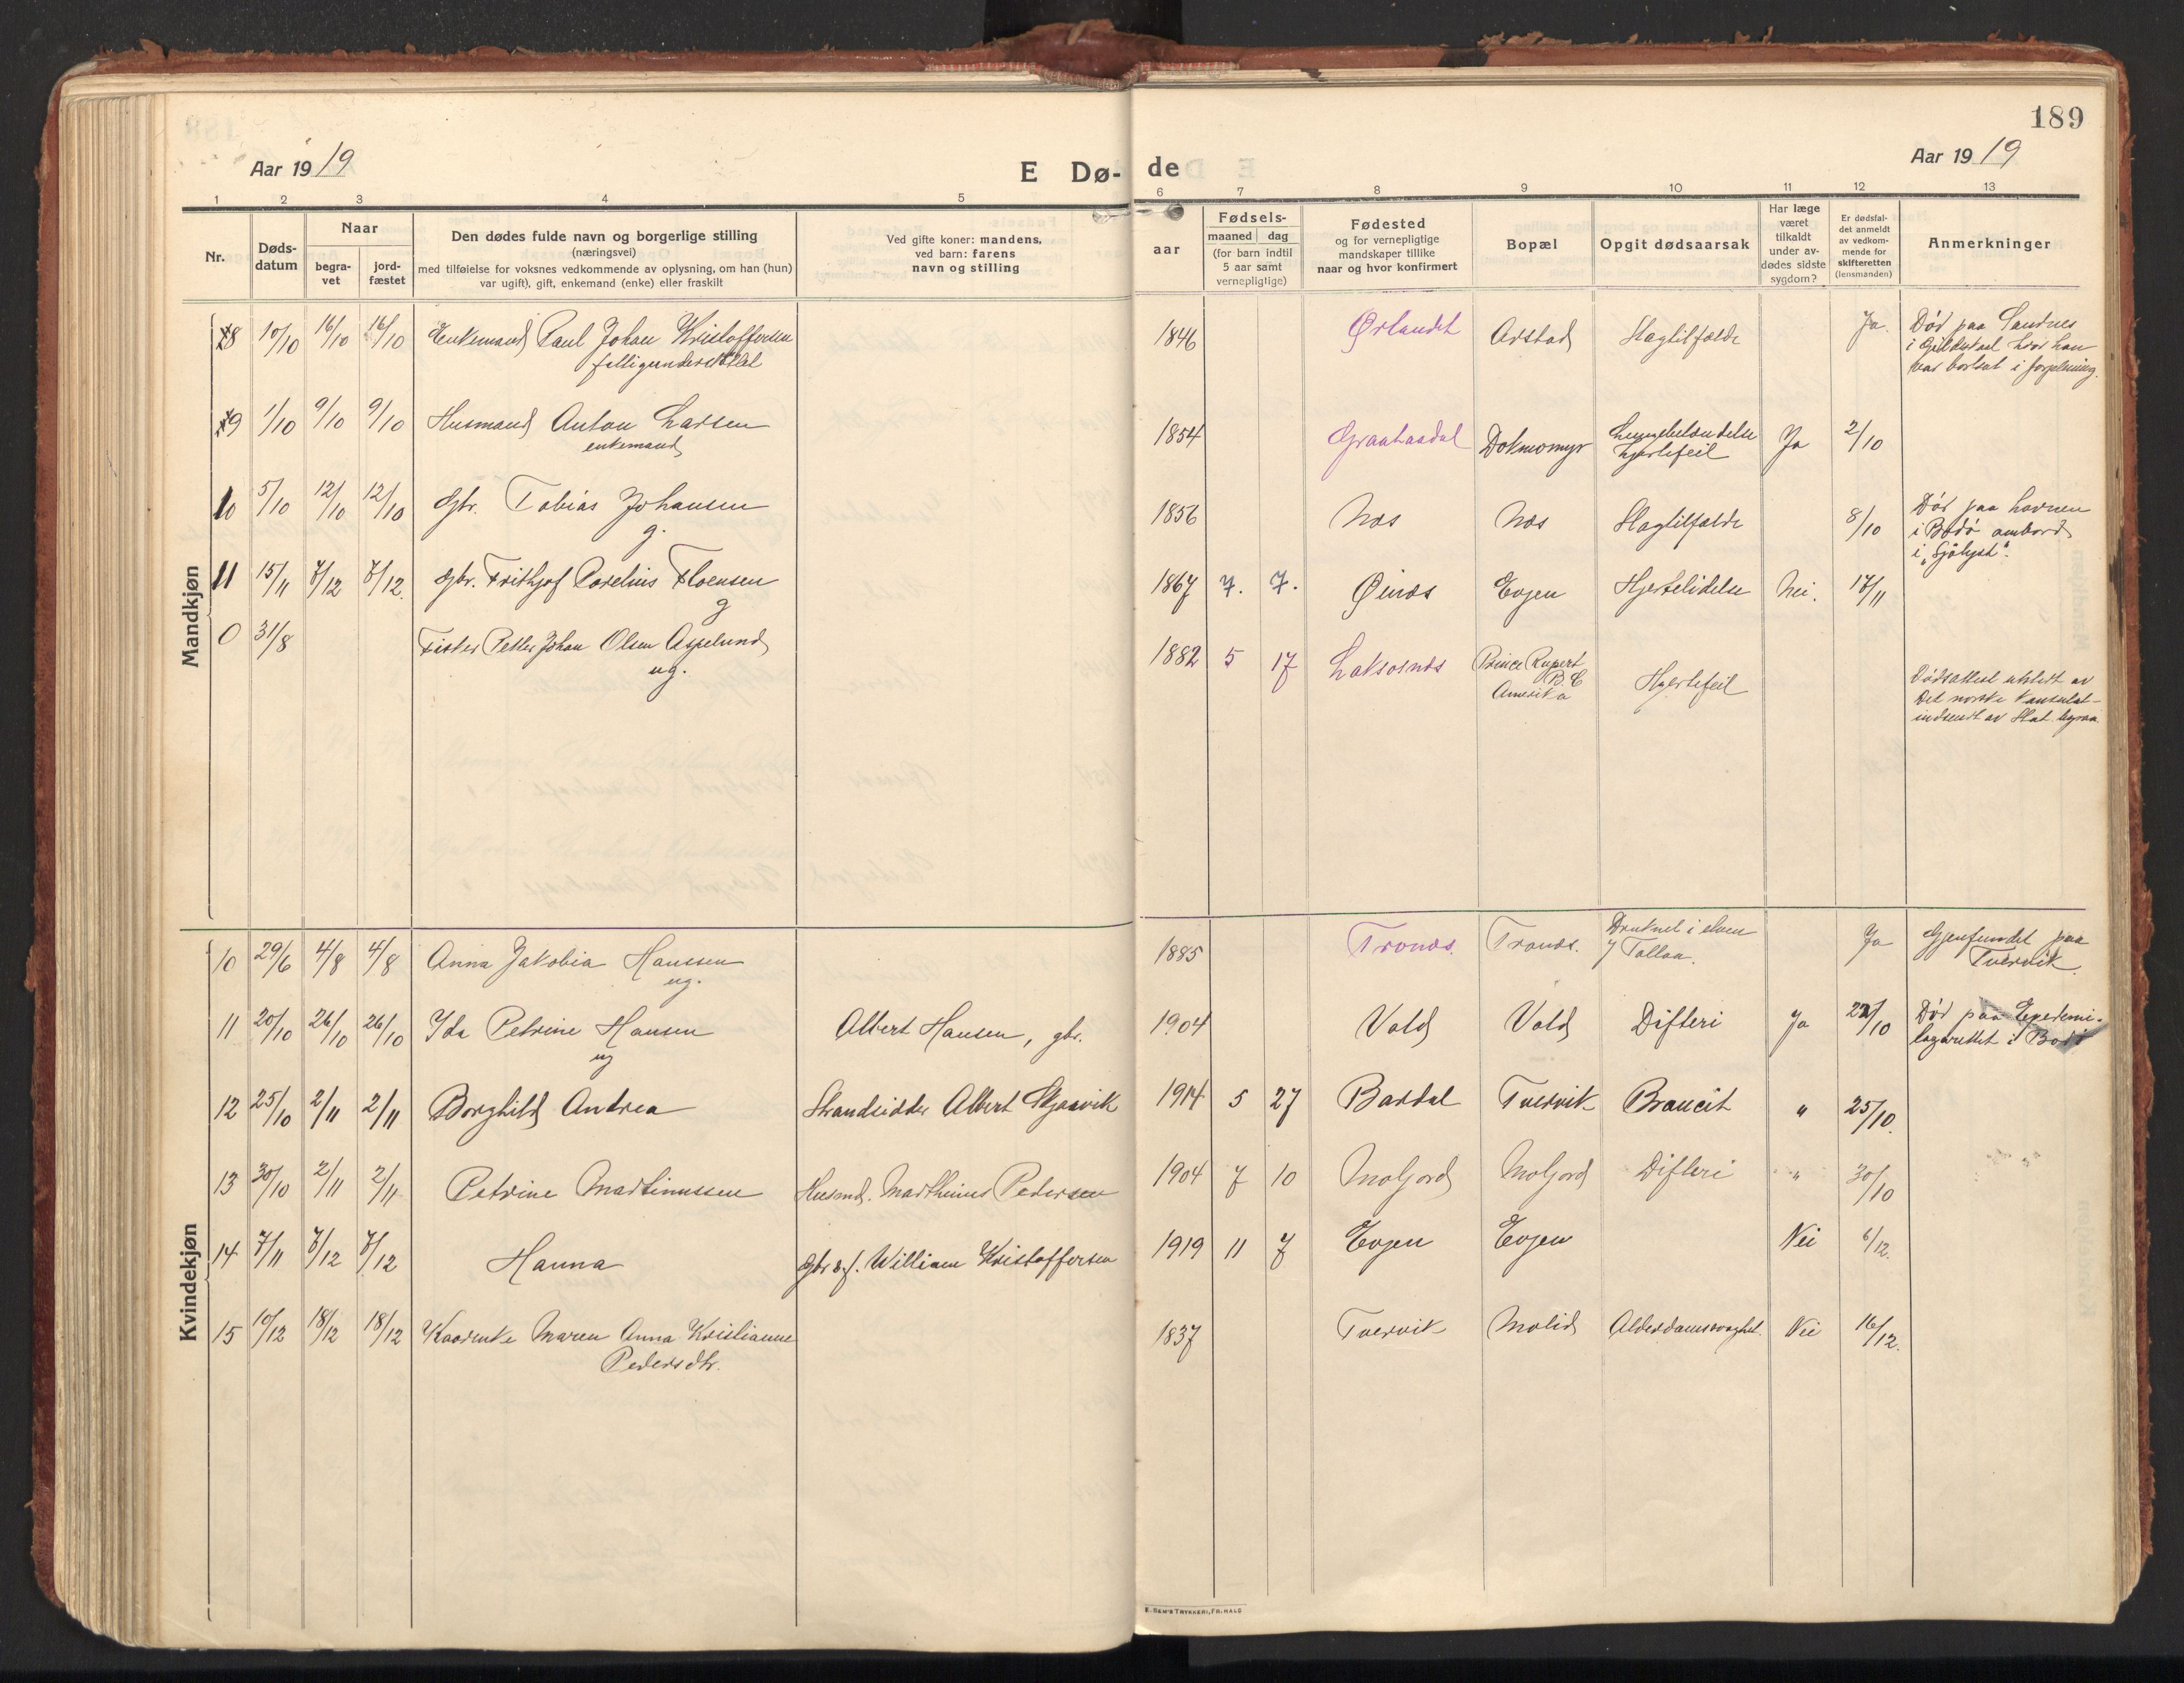 189
Aar 1919
E Dø- de
Aar 1919
1 2 3 4 5 6 7 8 9 10 11 12 13
Nr.
Døds-
datum
Naar
begra-
vet
jord-
fæstet
Den dødes fulde navn og borgerlige stilling
(næringsvei)
med tilføielse for voksnes vedkommende av oplysning, om han (hun)
var ugift), gift, enkemand (enke) eller fraskilt
Ved gifte koner: mandens,
ved barn: farens
navn og stilling
aar
Fødsels-
maaned dag
(for barn indtil
5 aar samt
vernepligtige)
Fødested
og for vernepligtige
mandskaper tillike
naar og hvor konfirmert
Bopæl
Opgit dødsaarsak
Har læge
været
tilkaldt
under av-
dødes sidste
sygdom?
Er dødsfal-
det anmeldt
av vedkom-
mende for
skifteretten
(lensmanden)
Anmerkninger
Mandkjøn
8 10/10 16/10 16/10 Enkemand Paul Johan Kristoffersen 1846 Ørlandet Arstad Slagtilfælde Ja. Død paa Sandnes
fattigunderstøttet i Gildeskaal hvor han
var bortsat i forpleining.
9 1/10 9/10 9/10 Husmand Anton Larsen 1854 Graahaadal Dokmomyr Lungebetændelse Ja 2/10
enkemand hjertefeil
10 5/10 12/10 12/10 Gbr. Tobias Johansen 1856 Næs Næs Slagtilfælde 8/10 Død paa havnen
g. i Bodø ombord
i "Sjølyst".
11 15/11 7/12 7/12. Gbr. Frithjof Parelius Floensen 1867 7. 7. Øinæs Evjen Hjertelidelse Nei. 17/11
g
0 31/8 Fisker Petter Johan Olsen Aspelund 1882 5 17 Laksosnæs Prince Rupert
ug. B.C
Amerika Hjertefeil Dødsattest utstedt av
Det norske Konsulat-
indsendt av Stat. byraa
Kvindekjøn
10 29/6 4/8 4/8 Anna Jakobia Hanssen 1885 Tronæs. Tronæs. Druknet i elven Ja Gjenfundet paa
ug. Tollaa. Tvervik.
11 20/10 26/10 26/10 Ida Petrine Hansen Albert Hansen, gbr. 1904 Vold Vold Difteri Ja 22/10 Død paa Epedemi-
ug lazarettet i Bodø
12 25/10 2/11 2/11 Borghild Andrea Strandsidder Albert Skjaavik 1914 5 27 Bardal Tvervik Broncit " 25/10.
13 30/10 2/11 2/11 Petrine Martinussen Husmd. Marthinus Pedersen 1904 7 10 Moljord Moljord Difteri " 30/10
14 7/11 7/12 7/12 Hanna Gbr.s.f. William Kristoffersen 1919 11 7 Evjen Evjen Nei 6/12.
15 10/12 18/12 18/12 Kaarenke Maren Anna Kristianne 1837 Tvervik Molid Alderdomssvaghet. Nei 16/12.
Pedersdtr.
E. SEM'S TRYKKERI, FR.HALD